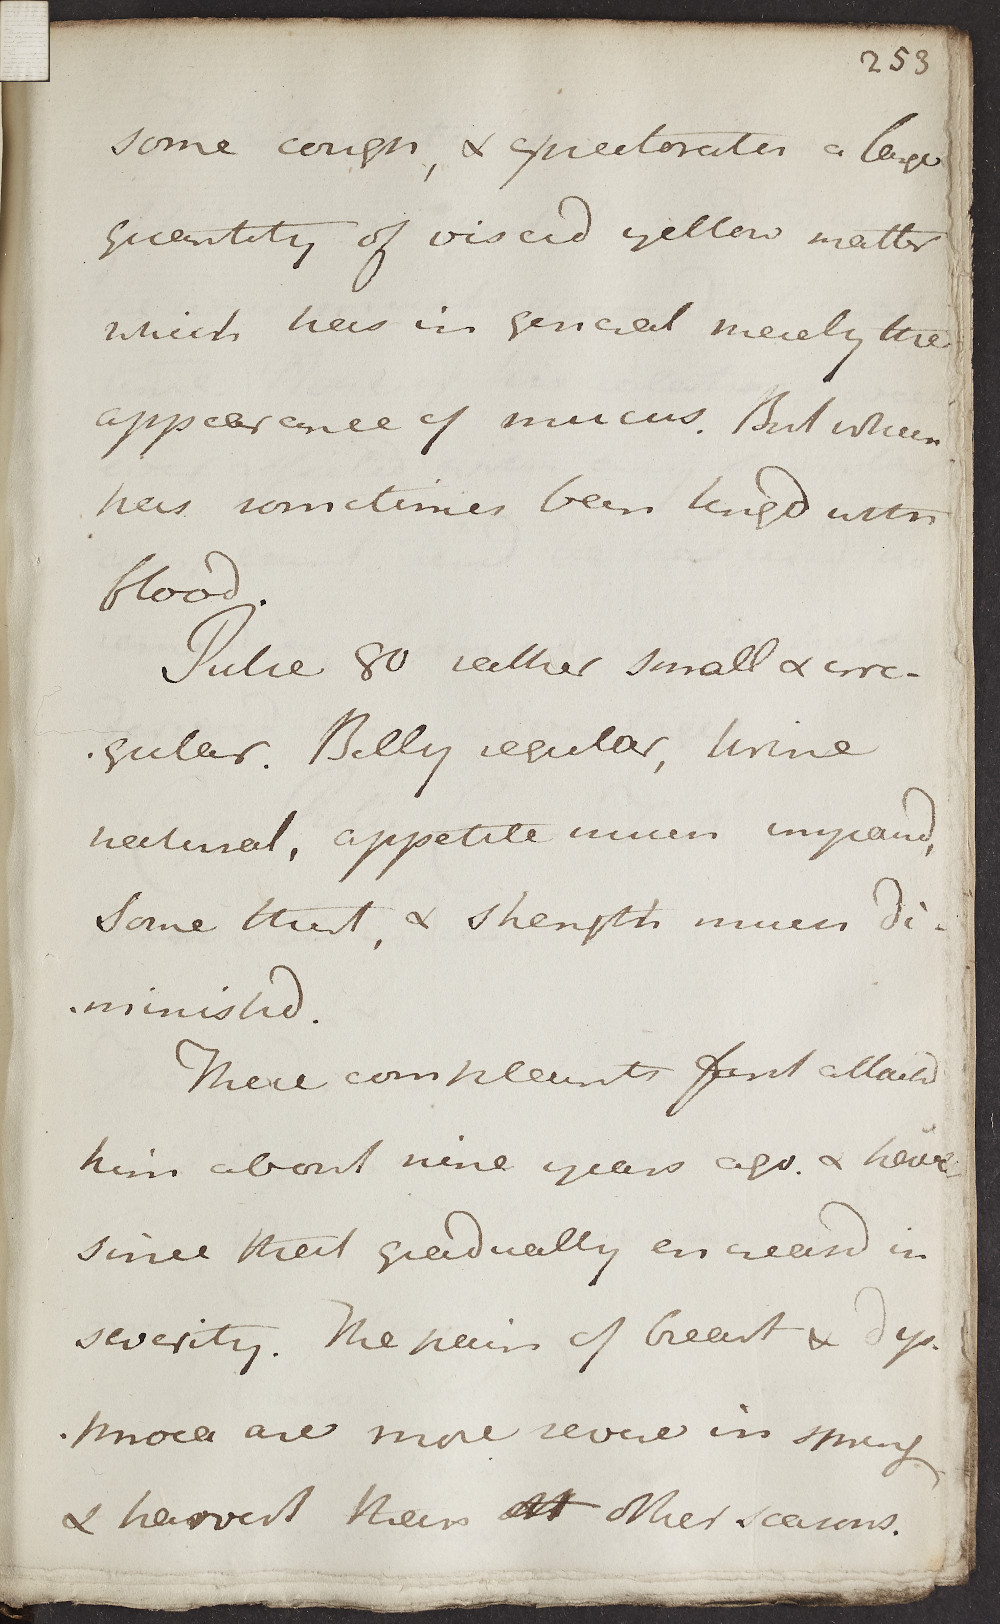 253
some cough, & expectorates a large
quantity of viscid yellow matter
which has in general merely the
appearance of mucus. But when
has sometimes been tinged with
blood.
Pulse 80 rather small & irre-
-gular. Belly regular, Urine
natural, appetite much impaird,
Some thirst, & strength much di-
-minishd.
These complaints first attackd
him about nine years ago. & have
since that gradually encreasd in
severity. The pain of breast & dys-
-pnoea are more severe in spring
& harvest than at other seasons.